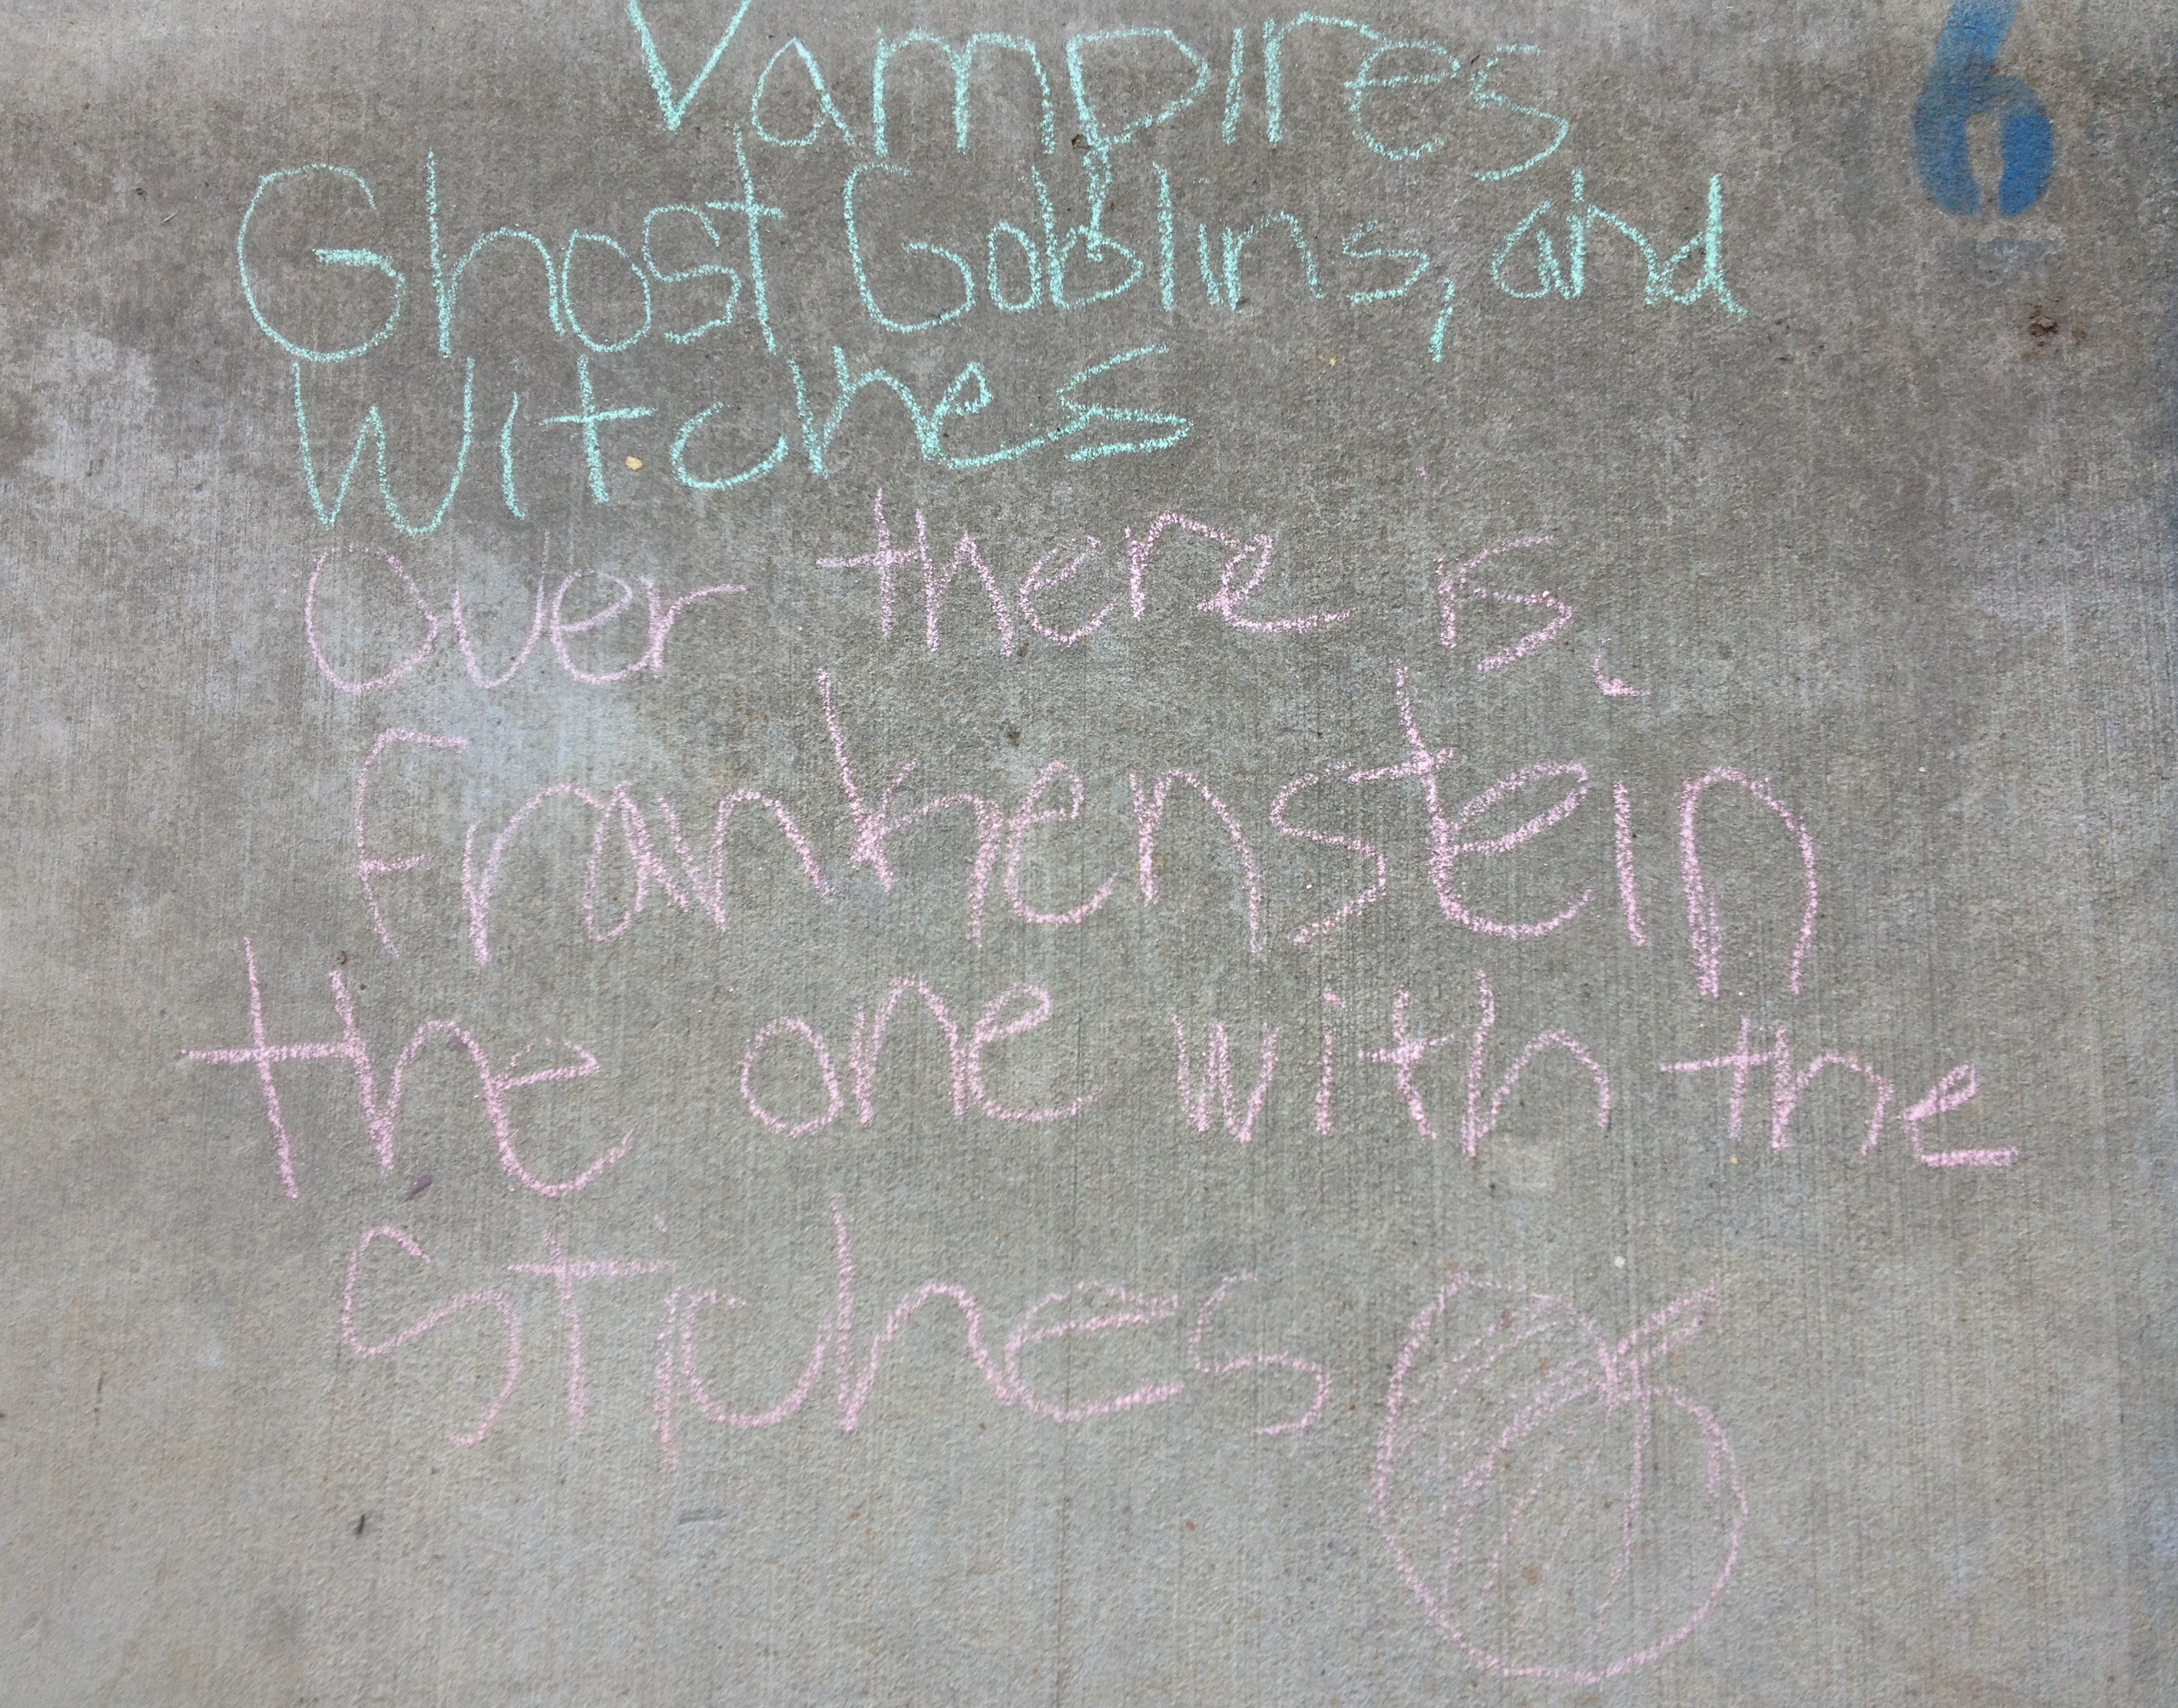 Vampires
6
Ghost Goblins, and
Witches
Over there is
Frankenstein
the one with the
Stiches